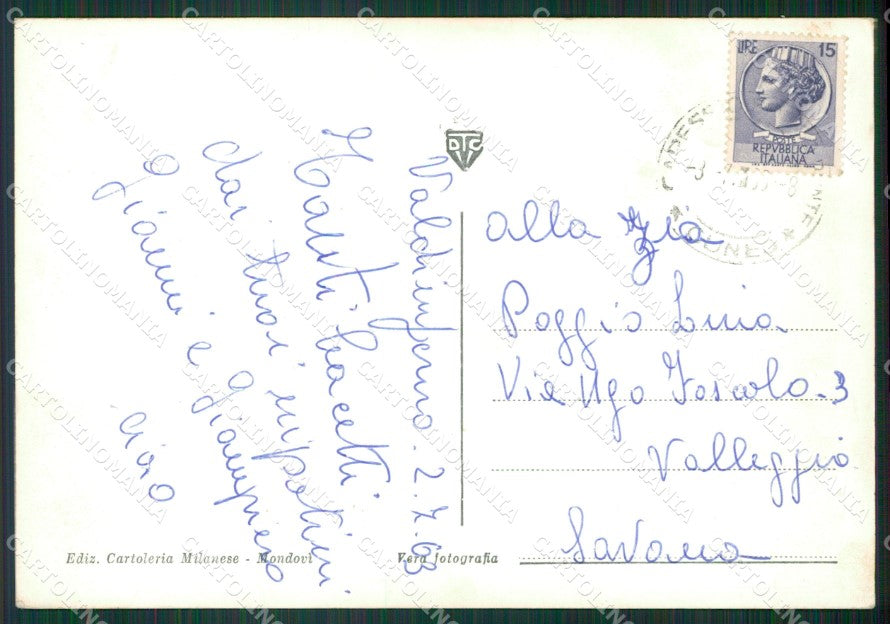 Valdinferno. 2.7.63
Tanti bacetti
dai tuoi nipotini
Gianni e Giampiero
ciao
DTC
LIRE 15
POSTE
REPVBBLICA
ITALIANA
alla zia
Poggio Luia
Via Ugo Foscolo. 3
Valleggia
Savona
Ediz. Cartoleria Milanese - Mondovì
Vera fotografia
CARTOLINOMANIA